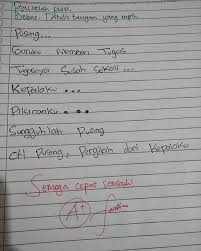 Buatlah puisi.
Ditulis tangan yang rapih.
Pusing...
Guruku Memberi Tugas
Tugasnya Susah Sekali...
Kepalaku...
Pikiranku...
Sungguhlah Pusing
Oh Pusing, Pergilah dari Kepalaku
Semoga cepat sembuh!
A+